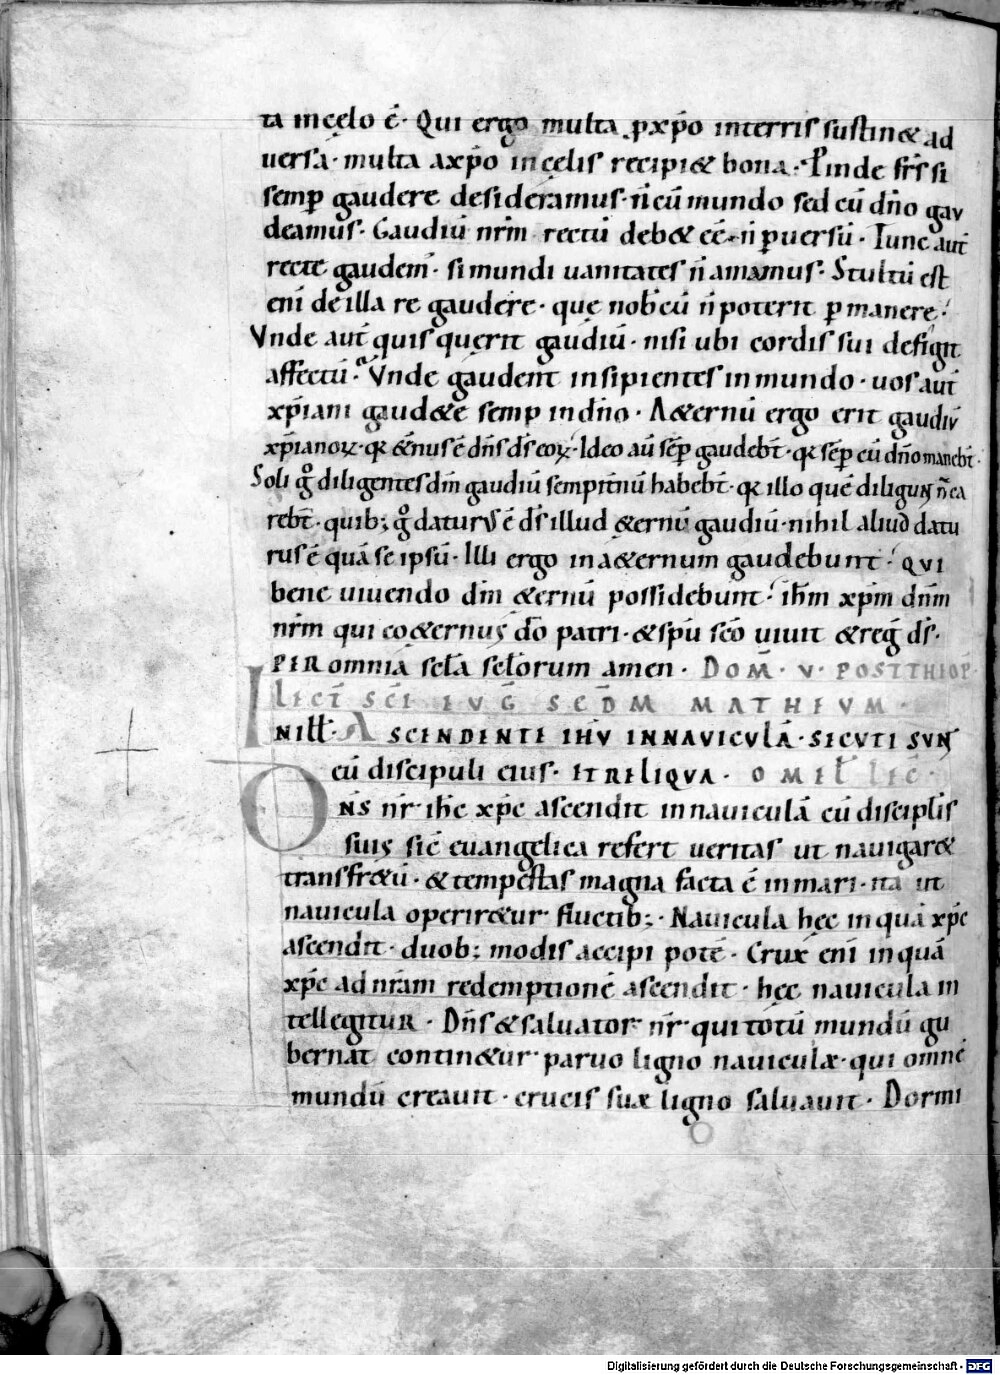 ta in cęlo ē· Qui ergo multa p xp̄o in terris sustin& ad
uersa· multa a xp̄o in cęlis recipi& bona· Proinde fr̄s si
semp gaudere desideramus· n̄ cū mundo sed cū dn̄o gau
deamus· Gaudiū nr̄m rectū deb& eē· n̄ puersū· Tunc aut̄
recte gaudem̄· si mundi uanitates n̄ amamus· Stultū est
eni͂ de illa re gaudere· quę nobcū n̄ poterit pmanere·
Vnde aut̄ quis querit gaudiū· nisi ubi cordis sui defigit
affectū· Vnde gaudent insipientes in mundo· uos aut̄
xp̄iani gaud&e semp in dn̄o· A&ernū ergo erit gaudiū
xp̄ianoꝝ· qꝛ &ernus ē dn̄s ds̄ eoꝝ· Ideo aū sēp gaudebt̄· qꝛ sēp cū dn̄o manebt̄·
Soli g̊ diligentes dm̄ gaudiū sempitnū habebt̄· qꝛ illo quē diligunt n̄ ca
rebt̄· quib; g̊ daturus ē ds̄ illud &ernū gaudiū· nihil aliud datu
rus ē quā se ipsū· Illi ergo in a&ernum gaudebunt· QVI
bene uiuendo dm̄ &ernū possidebunt· ih̄m xp̄m dn̄m
nr̄m qui co&ernus dō patri· & spū sc̄o uiuit & reḡ ds̄·
PER omnia sc̄la sc̄lorum amen· DOM̄· V· POST THEOP̄·
LECT̄ SC̄I EVḠ SCD̄M MATHEVM·
IN ILL̄· ASCENDENTE IHV̄ IN NAVICULĀ· SECUTI SUNT
eū discipuli eius· ET RELIQVA· OMEL̄ LEC̄·
DNS nr̄ ih̄c xp̄c ascendit in nauiculā cū disciplis
suis sic̄ euangelica refert ueritas ut nauigare&
transfr&ū· & tempestas magna facta ē in mari· ita ut
nauicula operire&ur fluctib;· Nauicula hęc in quā xp̄c
ascendit· duob; modis accipi potē· Crux eni͂ in quā
xp̄c ad nr̄am redemptionē ascendit· hęc nauicula in
tellegitur· Dn̄s & saluator nr̄ qui totū mundū gu
bernat contin&ur paruo ligno nauiculæ· qui omnē
mundū creauit· crucis suæ ligno saluauit· Dormi
Digitalisierung gefördert durch die Deutsche Forschungsgemeinschaft - DFG